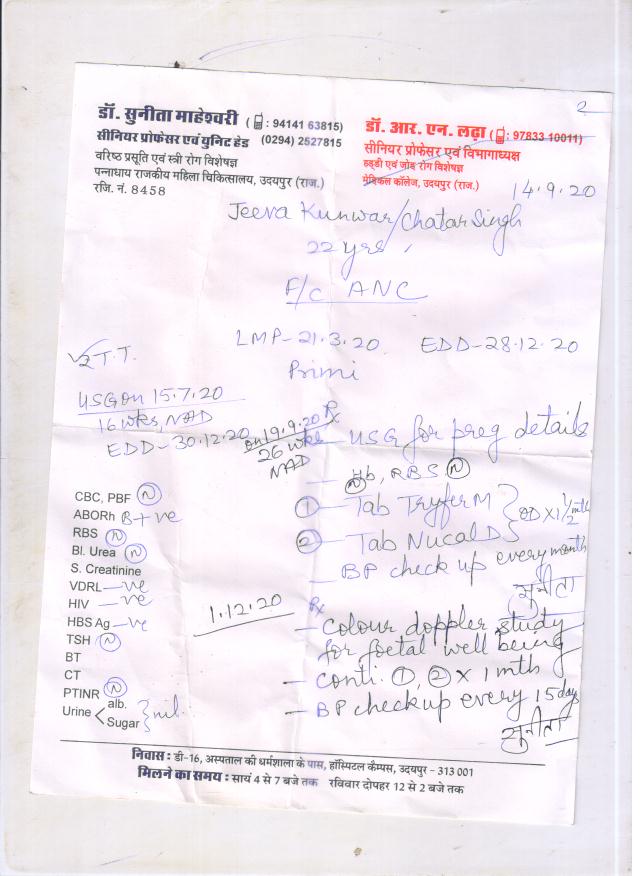 2
डॉ. सुनीता माहेश्वरी ( : 94141 63815)
सीनियर प्रोफेसर एवं युनिट हेड (0294) 2527815
वरिष्ठ प्रसूति एवं स्त्री रोग विशेषज्ञ
पन्नाधाय राजकीय महिला चिकित्सालय, उदयपुर (राज.)
रजि. नं. 8458
डॉ. आर. एन. लढ़ा ( : 97833 10011)
सीनियर प्रोफेसर एवं विभागाध्यक्ष
हड्डी एवं जोड़ रोग विशेषज्ञ
मेडिकल कॉलेज, उदयपुर (राज.)
14.9.20
Jeeva Kunwar/Chatar Singh
22 yrs
F/c ANC
LMP-21.3.20 EDD-28.12.20
2 T.T.
Primi
USG on 15.7.20
16 wks, NAD
EDD-30.12.20
on 19.9.20
26 wks
NAD
Rx
— USG for preg details
— Hb, RBS (N)
(N)
① — Tab Tryfer M } OD x 1 1/2 mth
② — Tab Nucal D }
— BP check up every month
सुनीता
CBC, PBF (N)
ABORh B+ve
RBS (N)
Bl. Urea (N)
S. Creatinine
VDRL —ve
HIV —ve
HBS Ag —ve
TSH (N)
BT
CT
PTINR (N)
Urine < alb. } nil.
Sugar
1.12.20
Rx
— Colour doppler study
for foetal well being
— Conti. ①, ② x 1 mth
— BP check up every 15 days
सुनीता
निवास : डी-16, अस्पताल की धर्मशाला के पास, हॉस्पिटल कैम्पस, उदयपुर - 313 001
मिलने का समय : सायं 4 से 7 बजे तक रविवार दोपहर 12 से 2 बजे तक